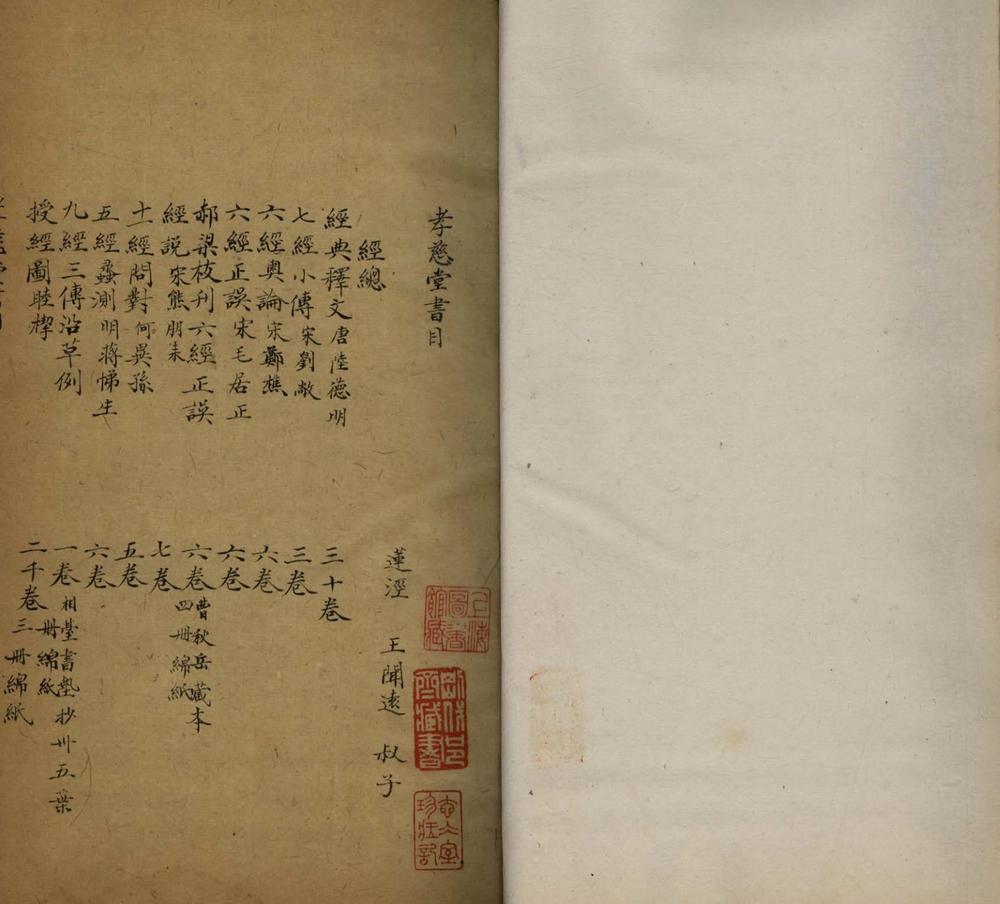 孝慈堂書目
蓮涇 王聞遠 叔子
經總
經典釋文唐陸德明 三十卷
七經小傳宋劉敞 三卷
六經奧論宋鄭樵 六卷
六經正誤宋毛居正 六卷
郝梁校刋六經正誤 六卷曹秋岳藏本四冊綿紙
經說宋熊朋來 七卷
十一經問對何異孫 五卷
五經蠡測明蔣悌生 六卷
九經三傳沿革例 一卷相臺書塾抄卅五葉一冊綿紙
授經圖睦㮮 二十卷三冊綿紙
上海圖書館藏